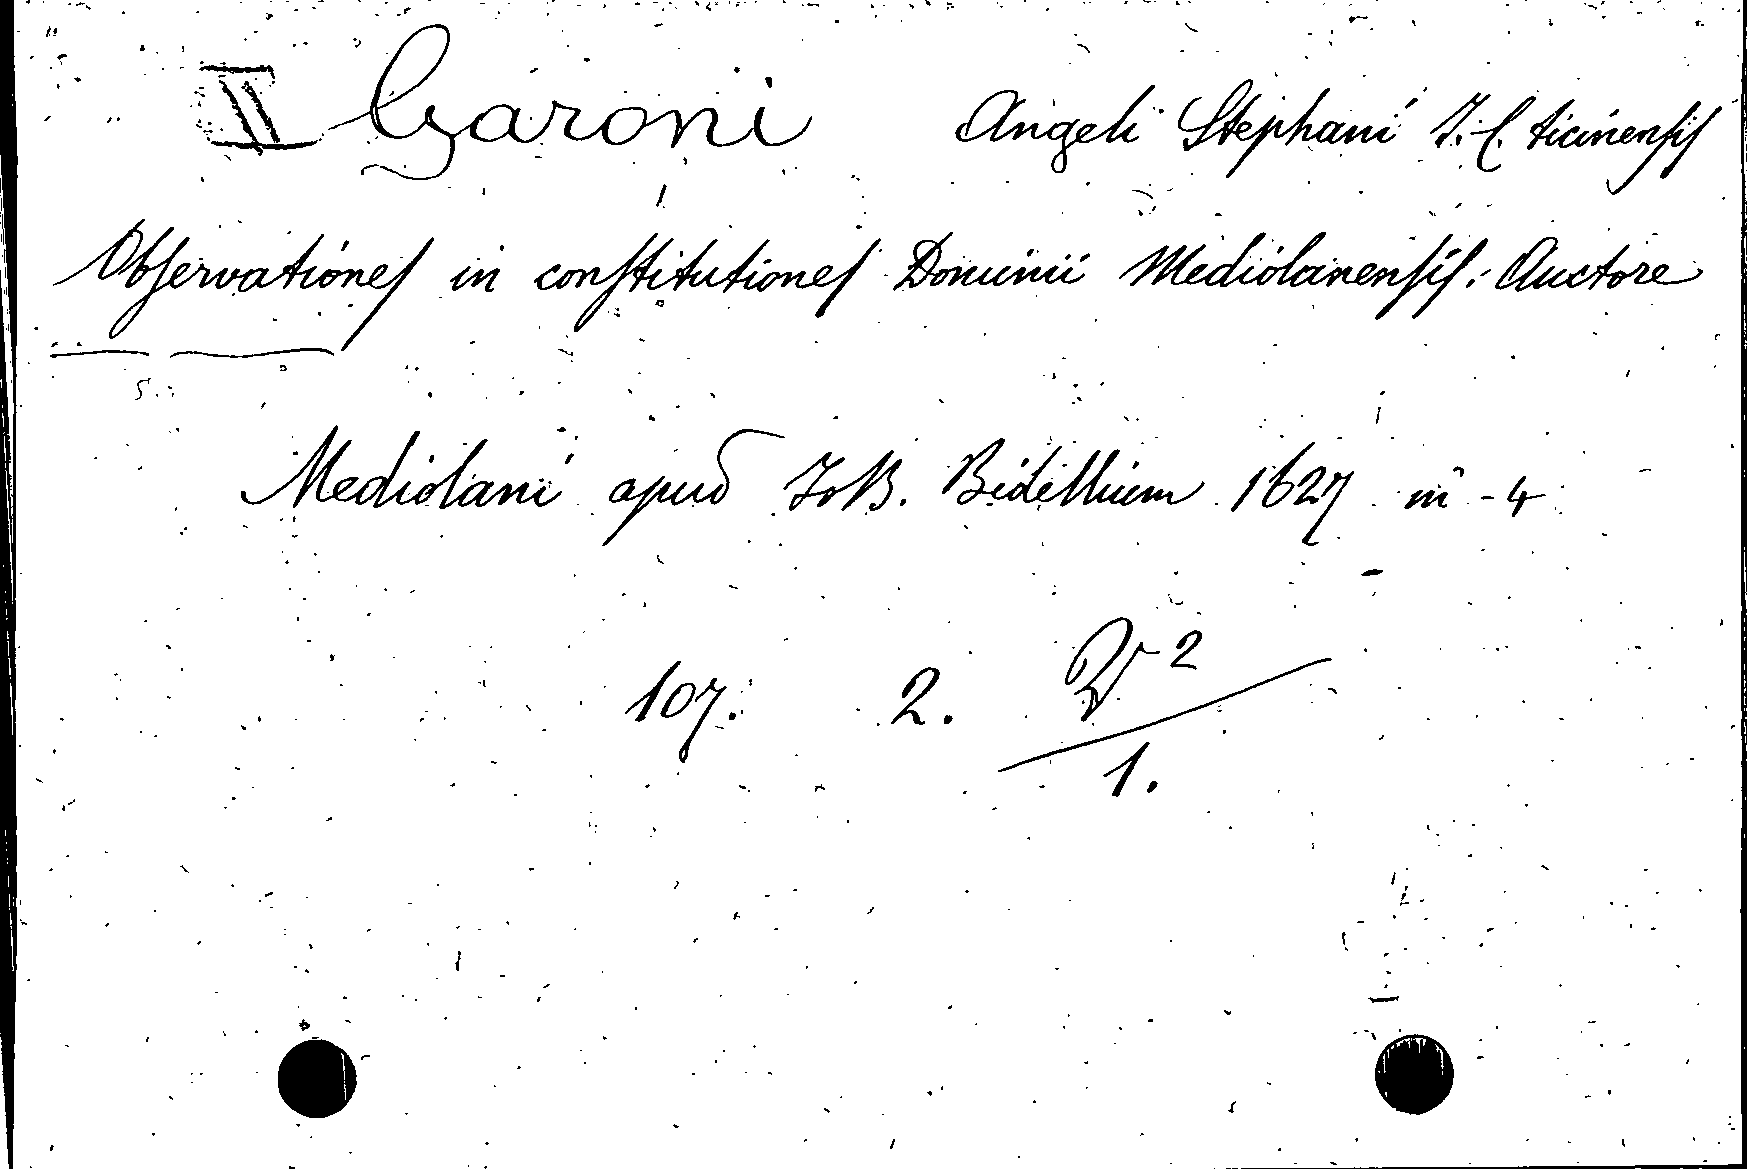 II Garoni Angeli Stephani J. C. ticinensis
Observationes in constitutiones Dominii Mediolanensis: Auctore
Mediolani apud Jo B. Bidellium 1627 in -4
107. 2. V 2
1.